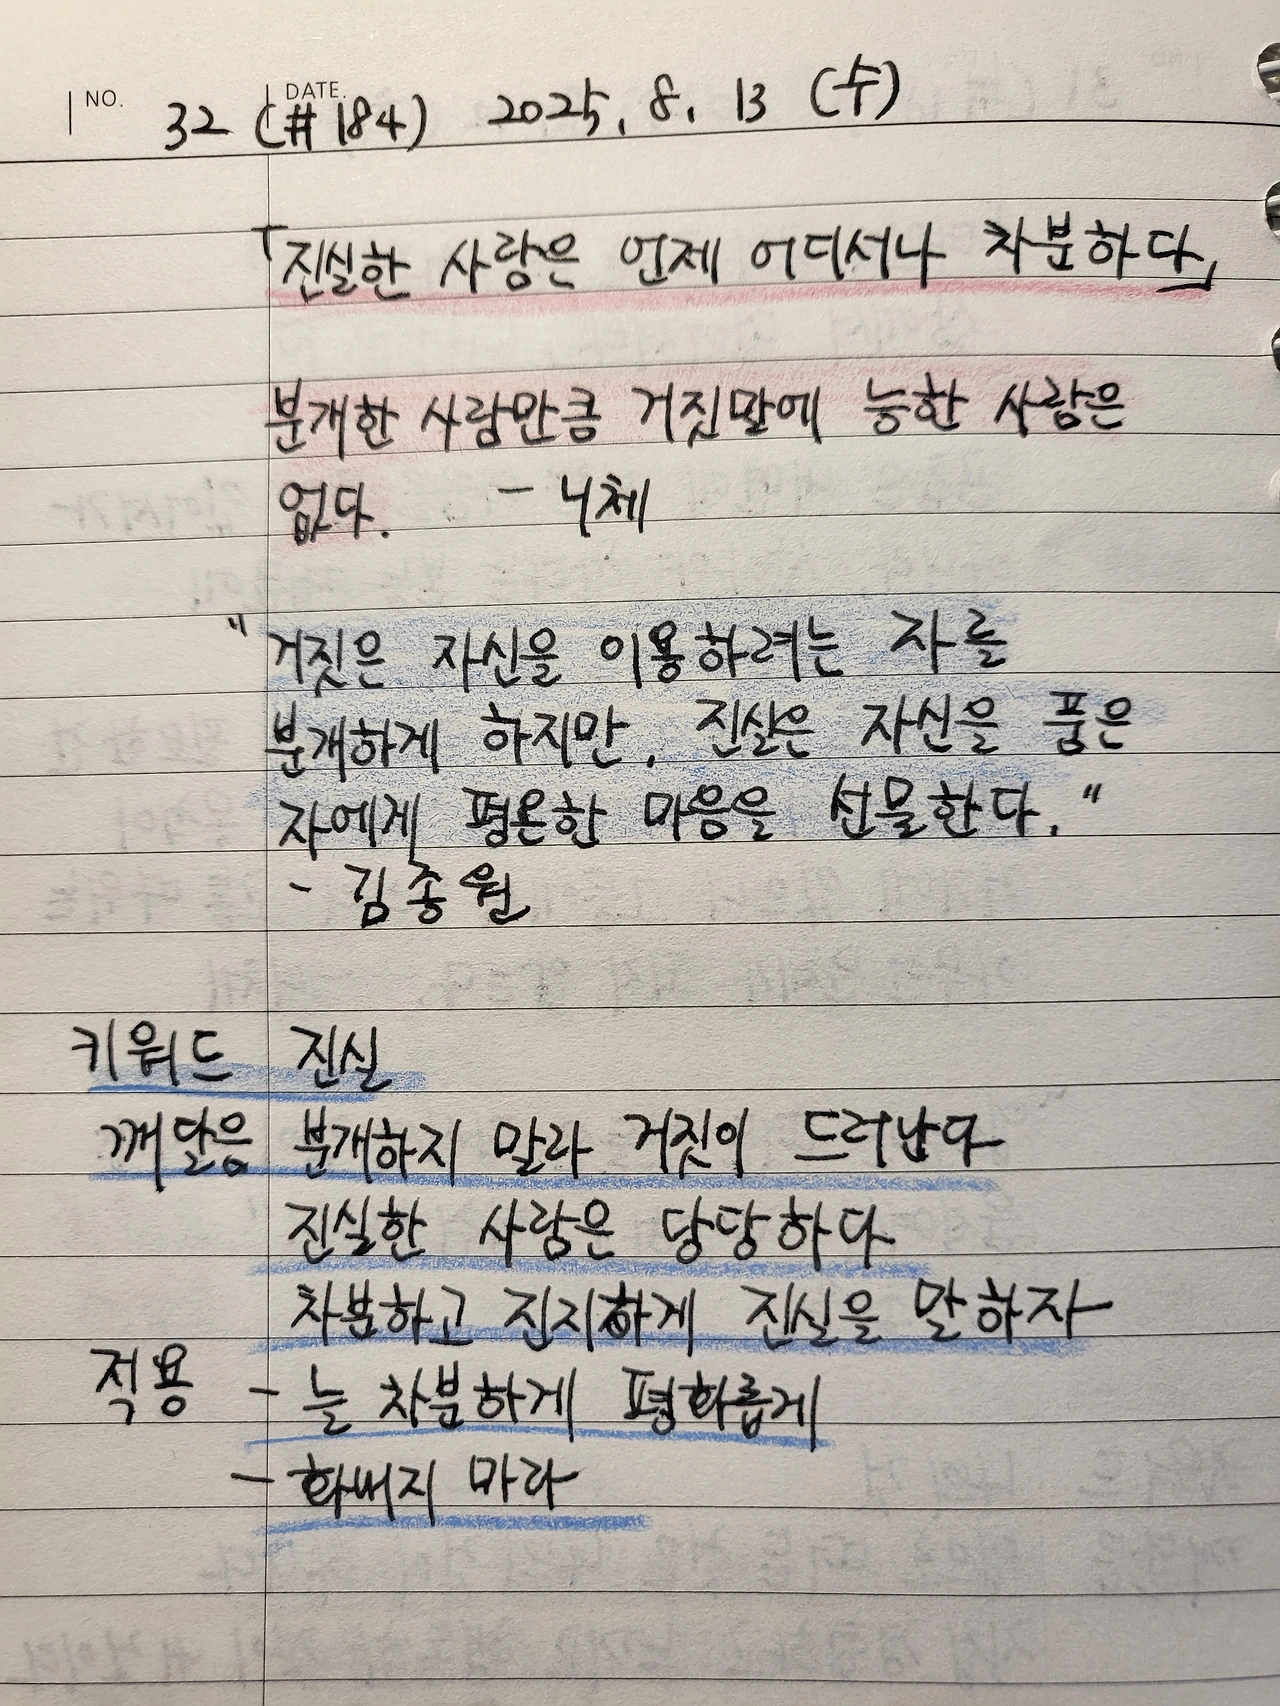 NO. 32 (#184) DATE. 2025. 8. 13 (수)
「진실한 사람은 언제 어디서나 차분하다」
분개한 사람만큼 거짓말에 능한 사람은
없다. - 니체
"거짓은 자신을 이용하려는 자를
분개하게 하지만, 진실은 자신을 품은
자에게 평온한 마음을 선물한다."
- 김종원
키워드 진실
깨달음 분개하지 말라 거짓이 드러난다
진실한 사람은 당당하다
차분하고 진지하게 진실을 말하자
적용 - 늘 차분하게 평화롭게
- 화내지 마라